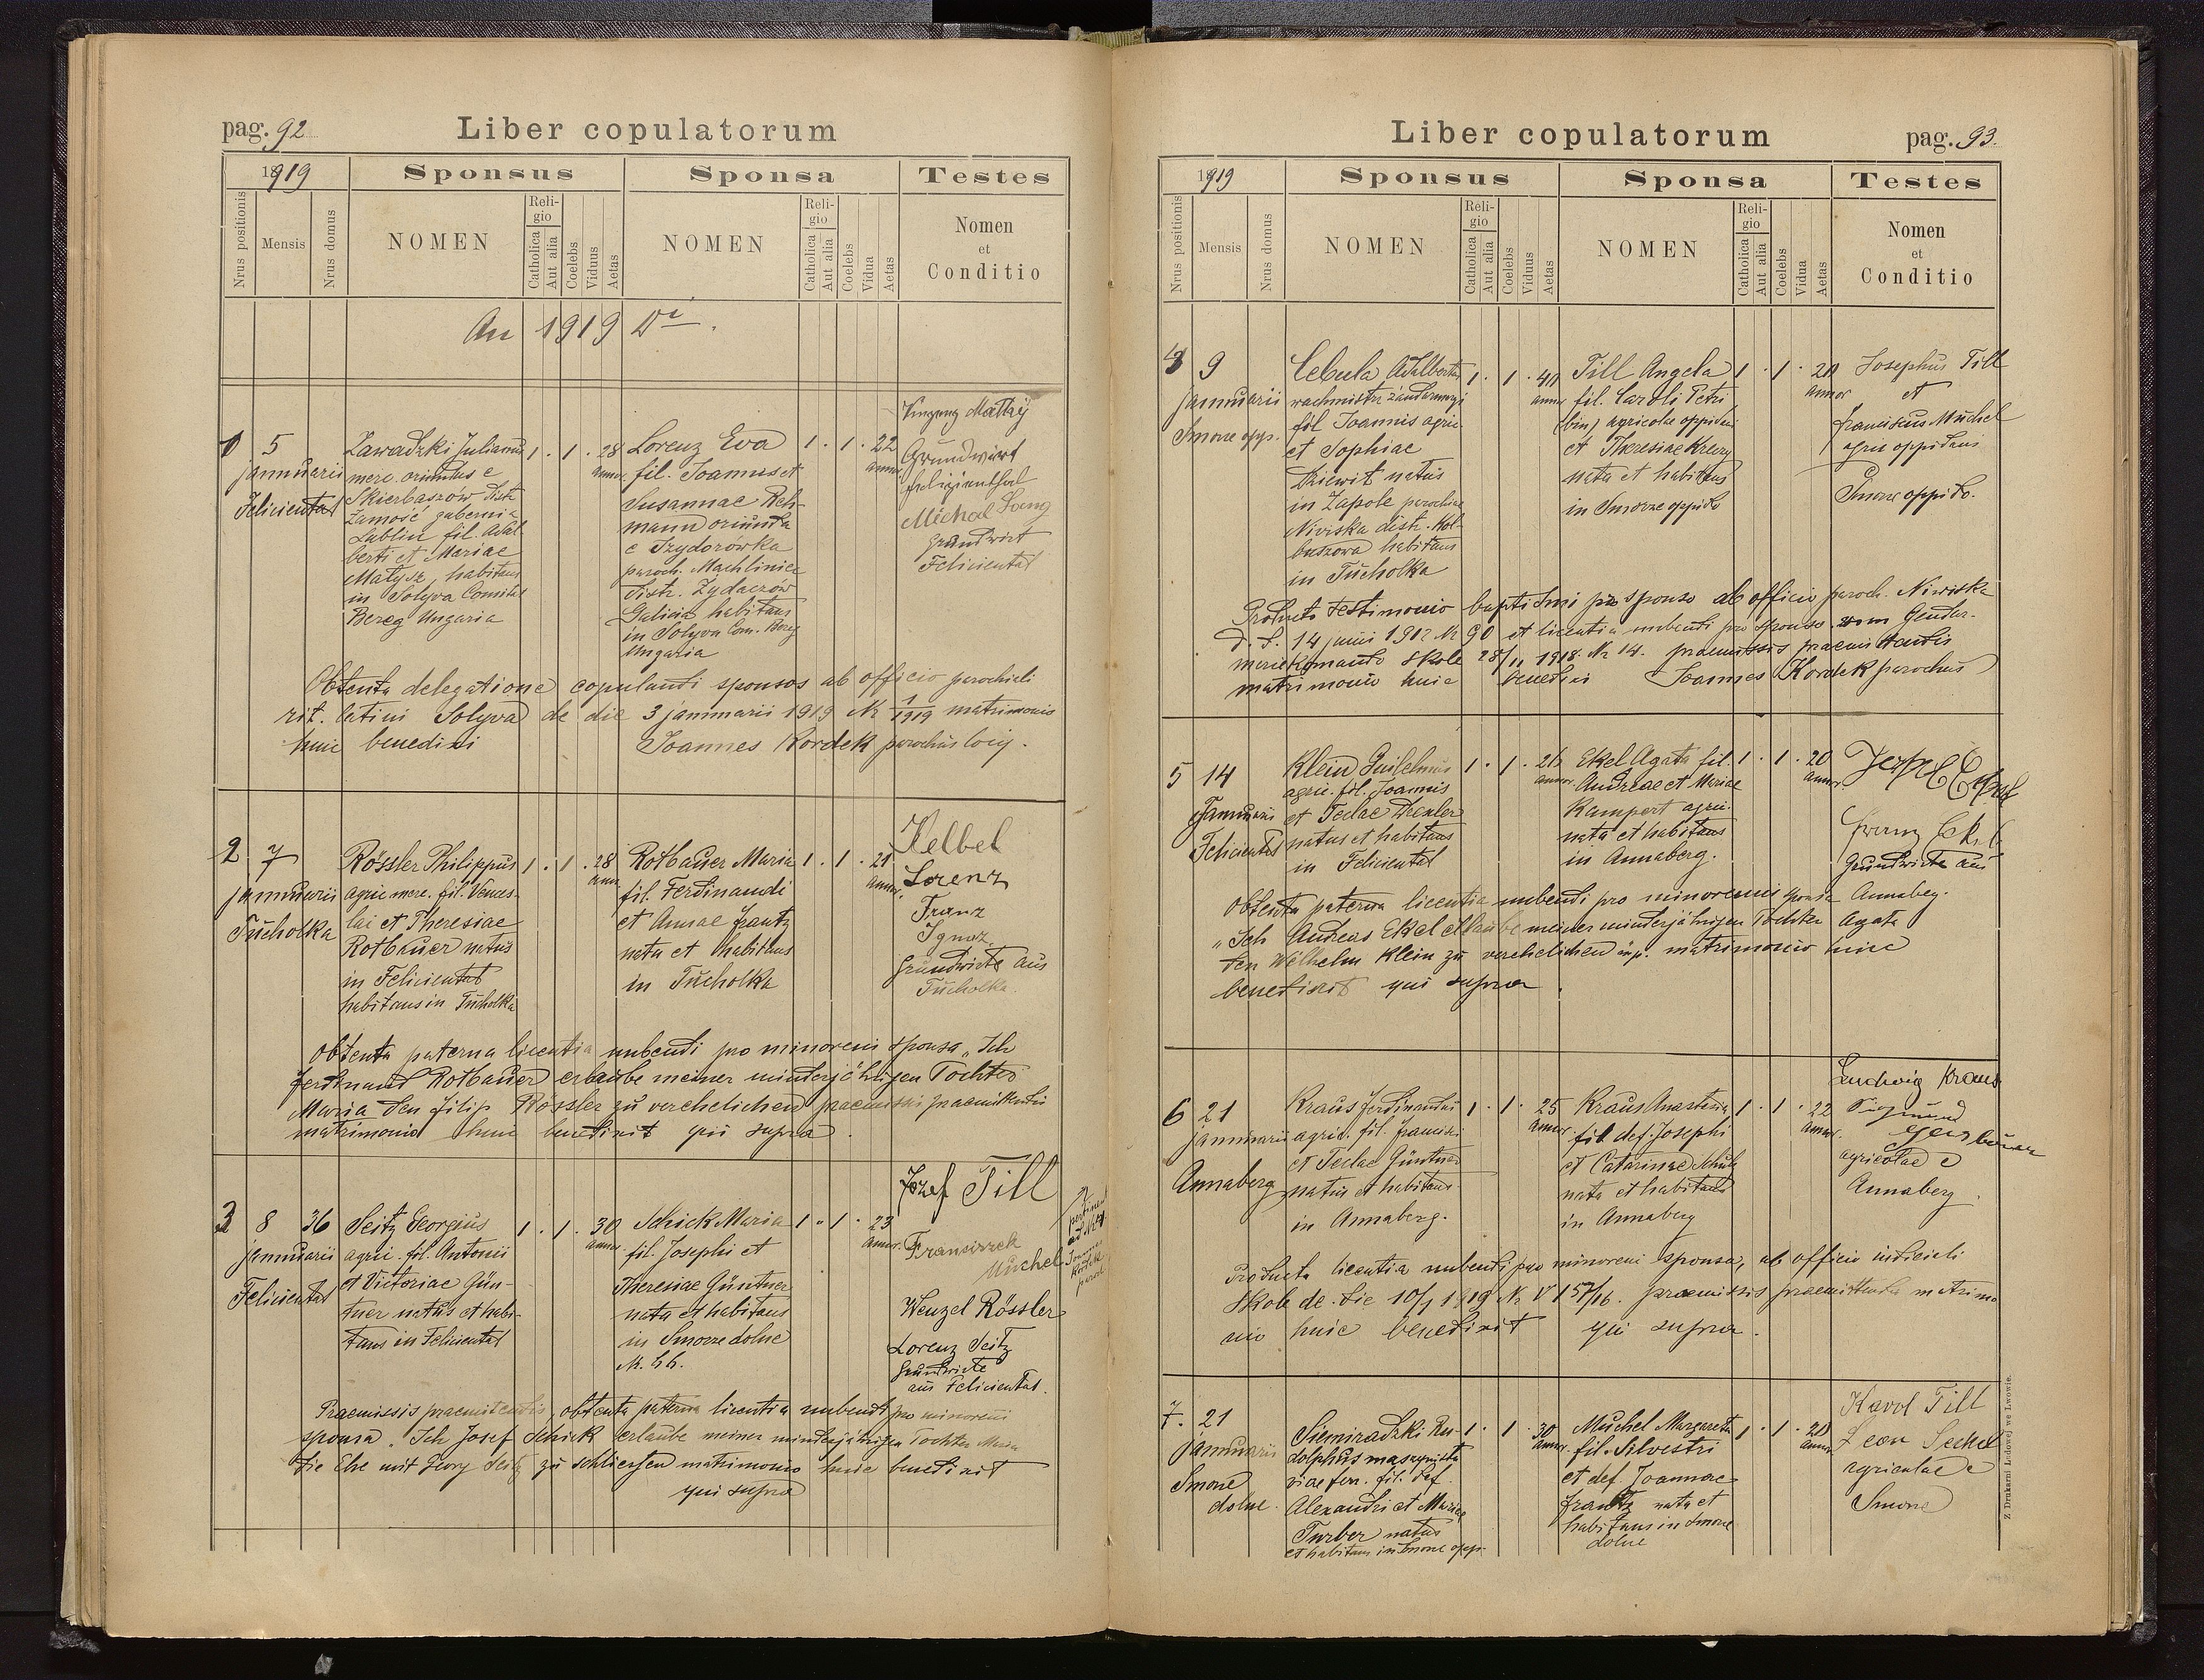 pag. 92 Liber copulatorum
1919 Sponsus Sponsa Testes
Nrus positionis Mensis Nrus domus NOMEN Religio Catholica Aut alia Coelebs Viduus Aetas NOMEN Religio Catholica Aut alia Coelebs Vidua Aetas Nomen et Conditio
An 1919 Di.
1 5 januarii Feliciental
Zawadzki Julianus
merc. oriundus e
Skierbaszów distr.
Zamość gubernia
Lublin fil. Adal-
berti et Mariae
Matysz, habitans
in Solyva Comitat
Bereg Ungaria
1 . 1 . 28 annor.
Lorenz Eva
fil. Joannis et
Susannae Reh-
mann oriunda
e Izydorówka
paroch. Machliniec
distr. Żydaczów
Galicia habitans
in Solyva Com. Bereg
Ungaria
1 . 1 . 22 annor.
Mathy
Grundwirt
Felizienthal
Michal Lang
Grundwirt
Felicientál
Obtenta delegatione copulandi sponsos ab officio parochiali
rit. latini Solyva de die 3 januarii 1919 Nr 1/1919 matrimonio
huic benedixi Joannes Kordek parochus loci.
2 7 januarii Tucholka
Rössler Philippus
agric. merc. fil. Vences-
lai et Theresiae
Rotbauer natus
in Felicientál
habitans in Tucholka
1 . 1 . 28 ann.
Rotbauer Maria
fil. Ferdinandi
et Annae Frantz
nata et habitans
in Tucholka
1 . 1 . 21 annor.
Kelbel
Lorenz
Franz
Ignaz
Grundwirte aus
Tucholka.
Obtenta paterna licentia nubendi pro minoreni sponsa „Ich
Ferdinand Rotbauer erlaube meiner minderjährigen Tochter
Maria den Filip Rössler zu verehelichen praemissis praemittendis
matrimonio huic benedixit qui supra.
3 8 januarii Felicientál 36
Seitz Georgius
agric. fil. Antonii
et Victoriae Gün-
tner natus et habi-
tans in Felicientál
1 . 1 . 30 annor.
Schick Maria
fil. Josephi et
Theresiae Güntner
nata et habitans
in Smorze dolne
1 . 1 . 23 annor.
Józef Till
Franciszek
Muchel
pertinent
ad Nr 4
Joannes
Kordek
paroch
Wenzel Rössler
Lorenz Seitz
Grundwirte
aus Felicientál.
Praemissis praemitendis, obtenta paterna licentia nubendi pro minoreni
sponsa „Ich Josef Schick erlaube meiner minderjährigen Tochter Maria
die Ehe mit Georg Seitz zu schliessen matrimonio huic benedixit
qui supra
Liber copulatorum pag. 93.
1919 Sponsus Sponsa Testes
Nrus positionis Mensis Nrus domus NOMEN Religio Catholica Aut alia Coelebs Viduus Aetas NOMEN Religio Catholica Aut alia Coelebs Vidua Aetas Nomen et Conditio
4 9 januarii Smorze opp.
Cebula Adalbertus
wachmistrz żandarmeryi
fil. Joannis agric.
et Sophiae
natus
in Zapole parochia
Niwiska distr. Kol-
buszowa habitans
in Tucholka
1 . 1 . annor
Till Angela
fil. Caroli Petri
(bin) agricolae oppidani
et Theresiae
nata et habitans
in Smorze oppido
1 . 1 . annor
Josephus Till
et
Franciskus Muchel
agric. oppidani
Smorze oppido.
Producto testimonio baptismi pro sponso ab officio paroch. Niwiska
d. d. 14 junii 1912 Nr 90 et licentia nubendi pro sponso vom Gendar-
meriekomando Skole 28/11 1918 Nr 14. praemissis praemittendis
matrimonio huic benedixi Joannes Kordek parochus
5 14 Januarii Felicientál
Klein Guilelmus
agric. fil. Joannis
et Teclae Drexler
natus et habitans
in Felicientál
1 . 1 . annor.
Ekel Agata fil.
Andreae et Mariae
Rampert agric.
nata et habitans
in Annaberg.
1 . 1 . 20 annor.
Franz
Grundwirte aus
Annaberg.
Obtenta paterna licentia nubendi pro minoreni sponsa
„Ich Andreas Ekel erlaube meiner minderjährigen Tochter Agata
den Wilhelm Klein zu verehelichen matrimonio huic
benedixit qui supra.
6 21 januarii Annaberg
Kraus Ferdinandus
agric. fil. Francisci
et Teclae Güntner
natus et habitans
in Annaberg.
1 . 1 . 25 annor.
Kraus Anastasia
fil. def. Josephi
et Catarinae Schulz
nata et habitans
in Annaberg
1 . 1 . 22 annor.
Ludwig Kraus
Sigmund
agricolae e
Annaberg.
Producta licentia nubendi pro minoreni sponsa, ab officio iudiciali
Skole de die 10/1 1919 Nr V 157/16. praemissis praemittendis matrimo
nio huic benedixit qui supra.
7. 21 januarii Smorze dolne.
Siemiradzki Ru-
dolphus maszynista
viae ferr. fil. def.
Alexandri et Mariae
Turber natus
et habitans in Smorze opp.
1 . 1 . 30 annor.
Muchel Margareta
fil. Silvestri
et def. Joannae
Frantz nata et
habitans in Smorze
dolne
1 . 1 . annor.
Karol Till
Leon
agricolae e
Smorze
Z Drukarni Ludowej we Lwowie.